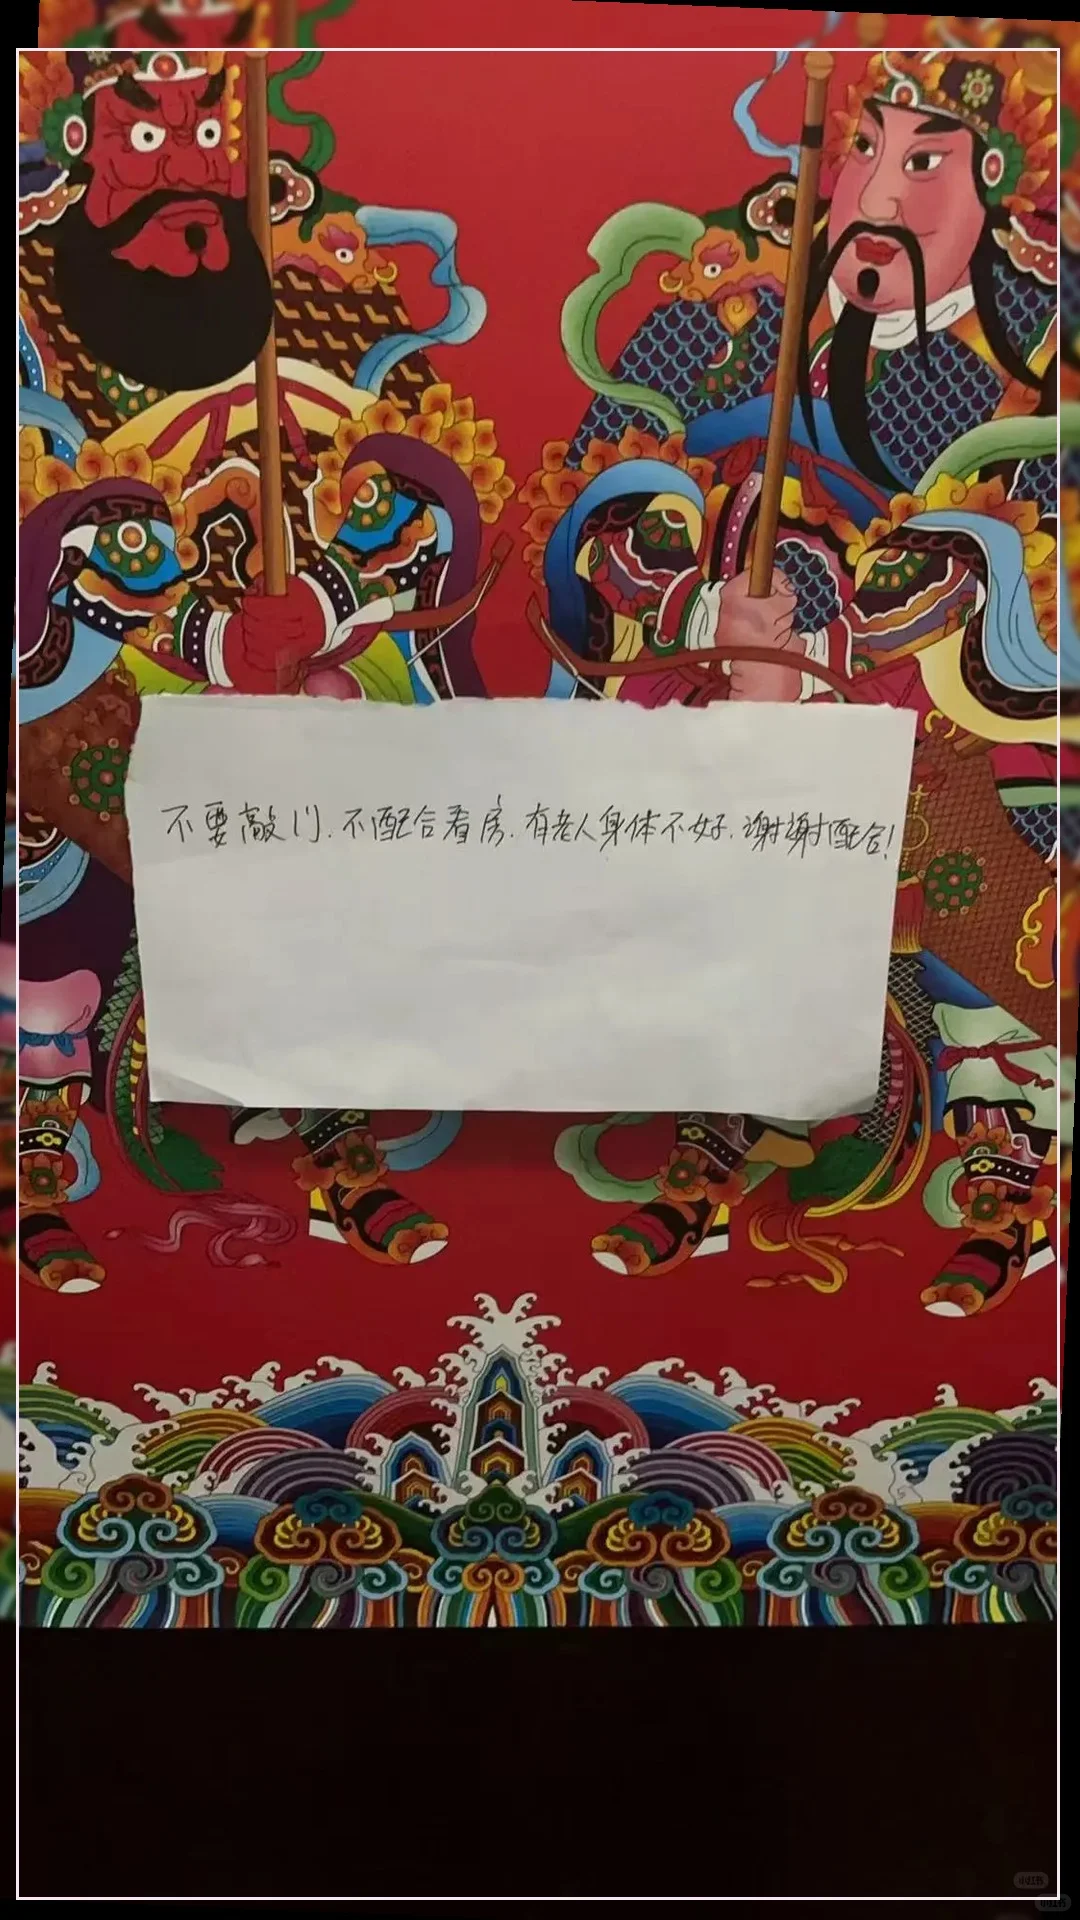 不要敲门.不配合看房.有老人身体不好.谢谢配合!